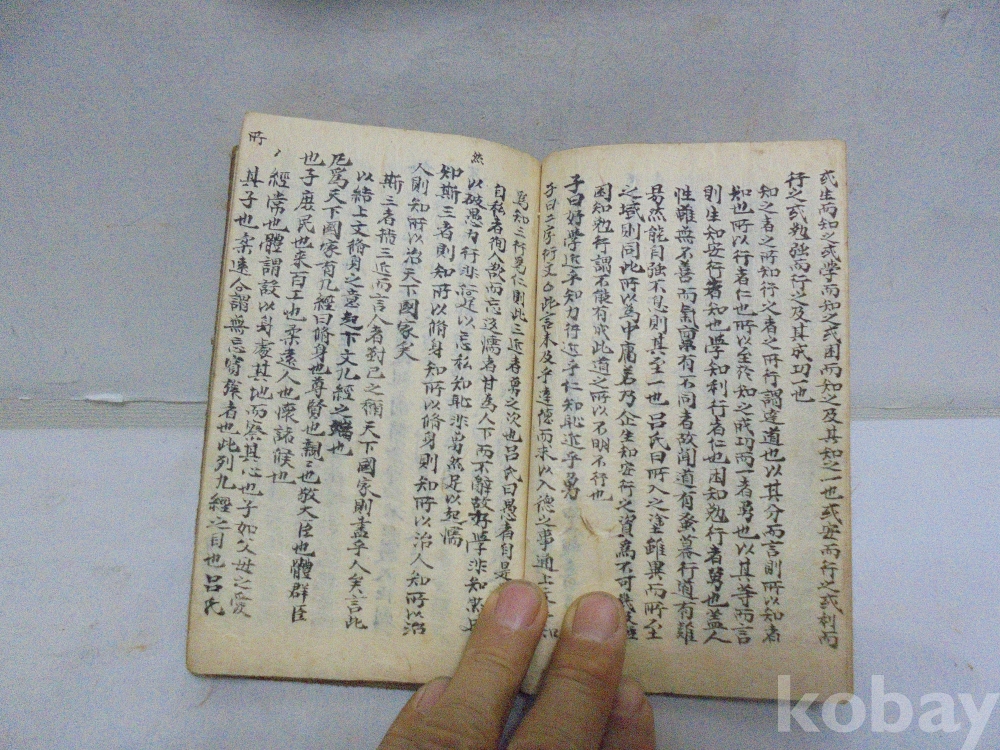 或生而知之或学而知之或困而知之及其知之一也或安而行之或利而
行之或勉強而行之及其成功一也
知之者之所知行之者之所行謂達道也以其分而言則所以知者
知也所以行者仁也所以至於知之成功而一者勇也以其等而言
則生知安行者知也学知利行者仁也困知勉行者勇也盖人
性雖無不善而氣稟有不同者故聞道有蚤莫行道有難
易然能自強不息則其至一也呂氏曰所入之塗雖異而所至
之域則同此所以爲中庸若乃企生知安行之資爲不可幾及
困知勉行謂不能有成此道之所以不明不行也
子曰好学近乎知力行近乎仁知恥近乎勇
子曰二字衍文 此言未及乎達德而求以入德之事通上文
爲知三行爲仁則此三近者勇之次也呂氏曰愚者自是
自私者徇人欲而忘返懦者甘爲人下而不辭故好学非知
以破愚力行非仁足以忘私知恥非勇然足以起懦
知斯三者則知所以脩身知所以脩身則知所以治人知所以治
人則知所以治天下國家矣
斯三者指三近而言人者對己之稱天下國家則盡乎人矣言此
以結上文脩身之意起下文九經之端也
凡爲天下國家有九經曰脩身也尊賢也親〻也敬大臣也體群臣
也子庶民也来百工也柔遠人也懷諸侯也
經常也體謂設以身處其地而察其心也子如父母之愛
其子也柔遠人謂無忘賓旅者也此列九經之目也呂氏
然
所
kobay